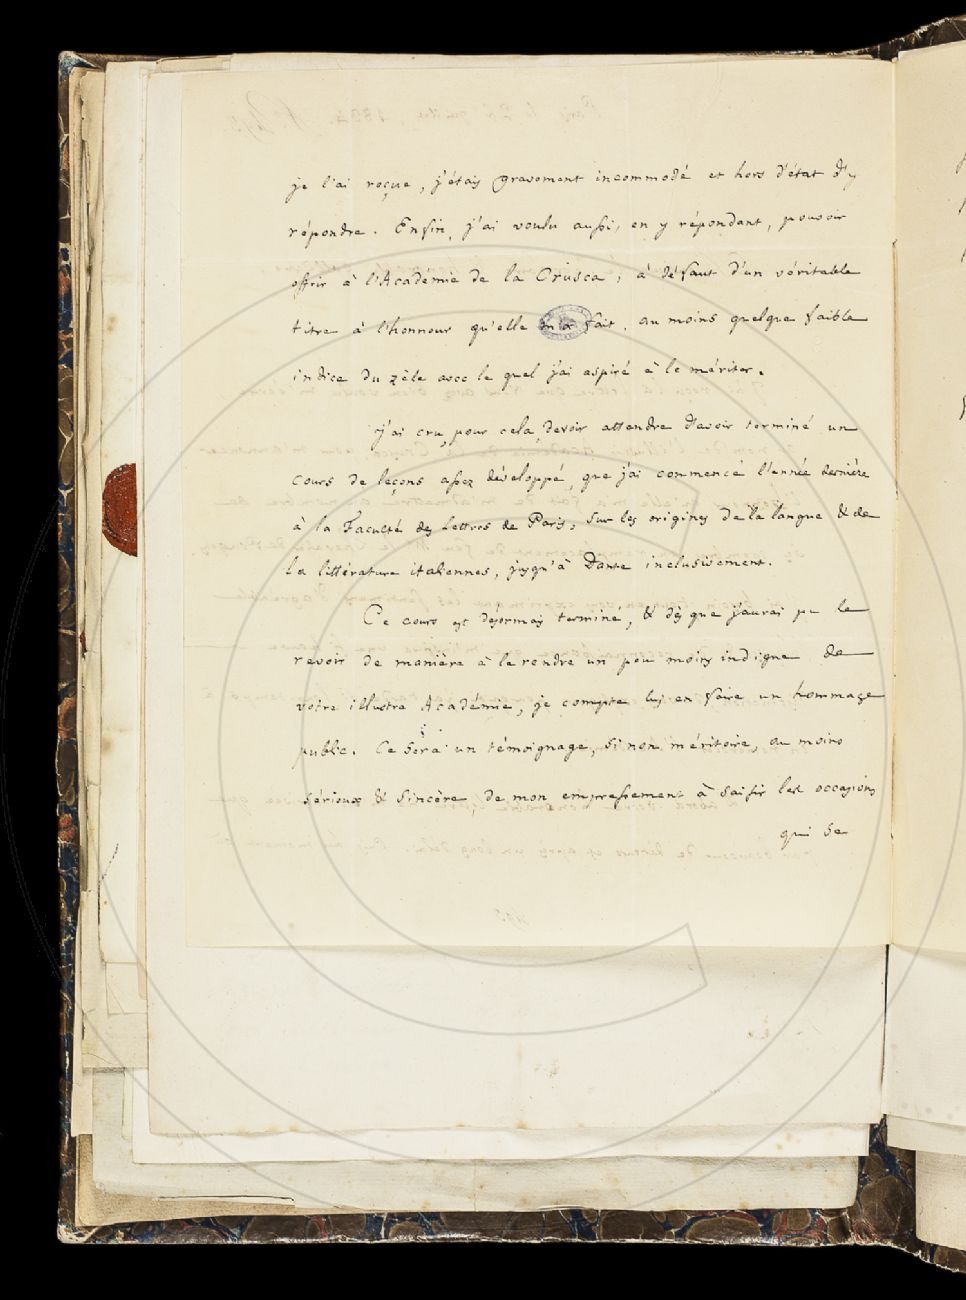 je l'ai roçue, j'étais gravement incommodé et hors d'état d'y
répondre. Enfin, j'ai voulu aussi, en y répondant, pouvoir
offrir à l'Académie de la Crusca, à défaut d'un véritable
titre à l'honneur qu'elle m'a fait, au moins quelque faible
indice du zèle avec le quel j'ai aspiré à le mériter.
j'ai cru, pour cela, devoir attendre d'avoir terminé un
cours de leçons assez développé, que j'ai commencé l'année dernière
à la Faculté des Lettres de Paris, sur les origines de la langue & de
la littérature italiennes, jusqu'à Dante inclusivement.
Ce cours est désormais terminé, & dès que j'aurai pu le
revoir de manière à le rendre un peu moins indigne de
votre illustre Académie, je compte lui en faire un hommage
public. Ce sera un témoignage, si non méritoire, au moins
sérieux & sincère, de mon empressement à saisir les occasions
qui se